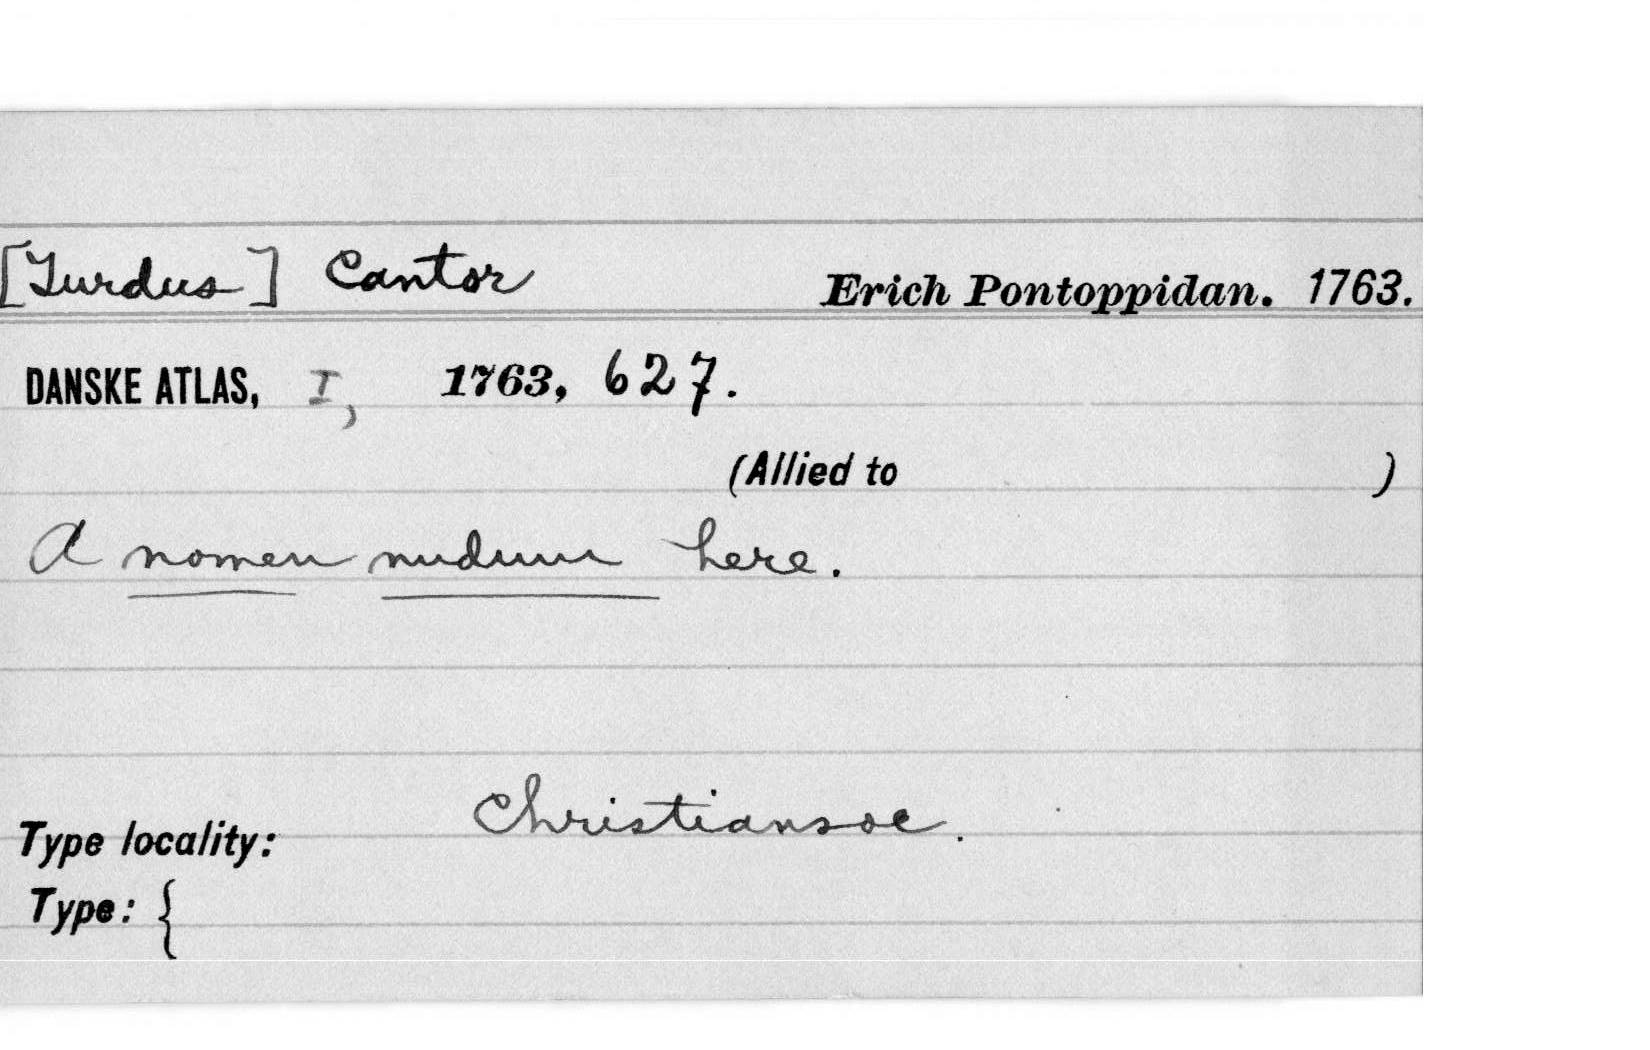 [Turdus] Cantor Erich Pontoppidan. 1763.
DANSKE ATLAS, I, 1763, 627.
(Allied to )
A nomen nudum here.
Christiansoe.
Type locality:
Type: {